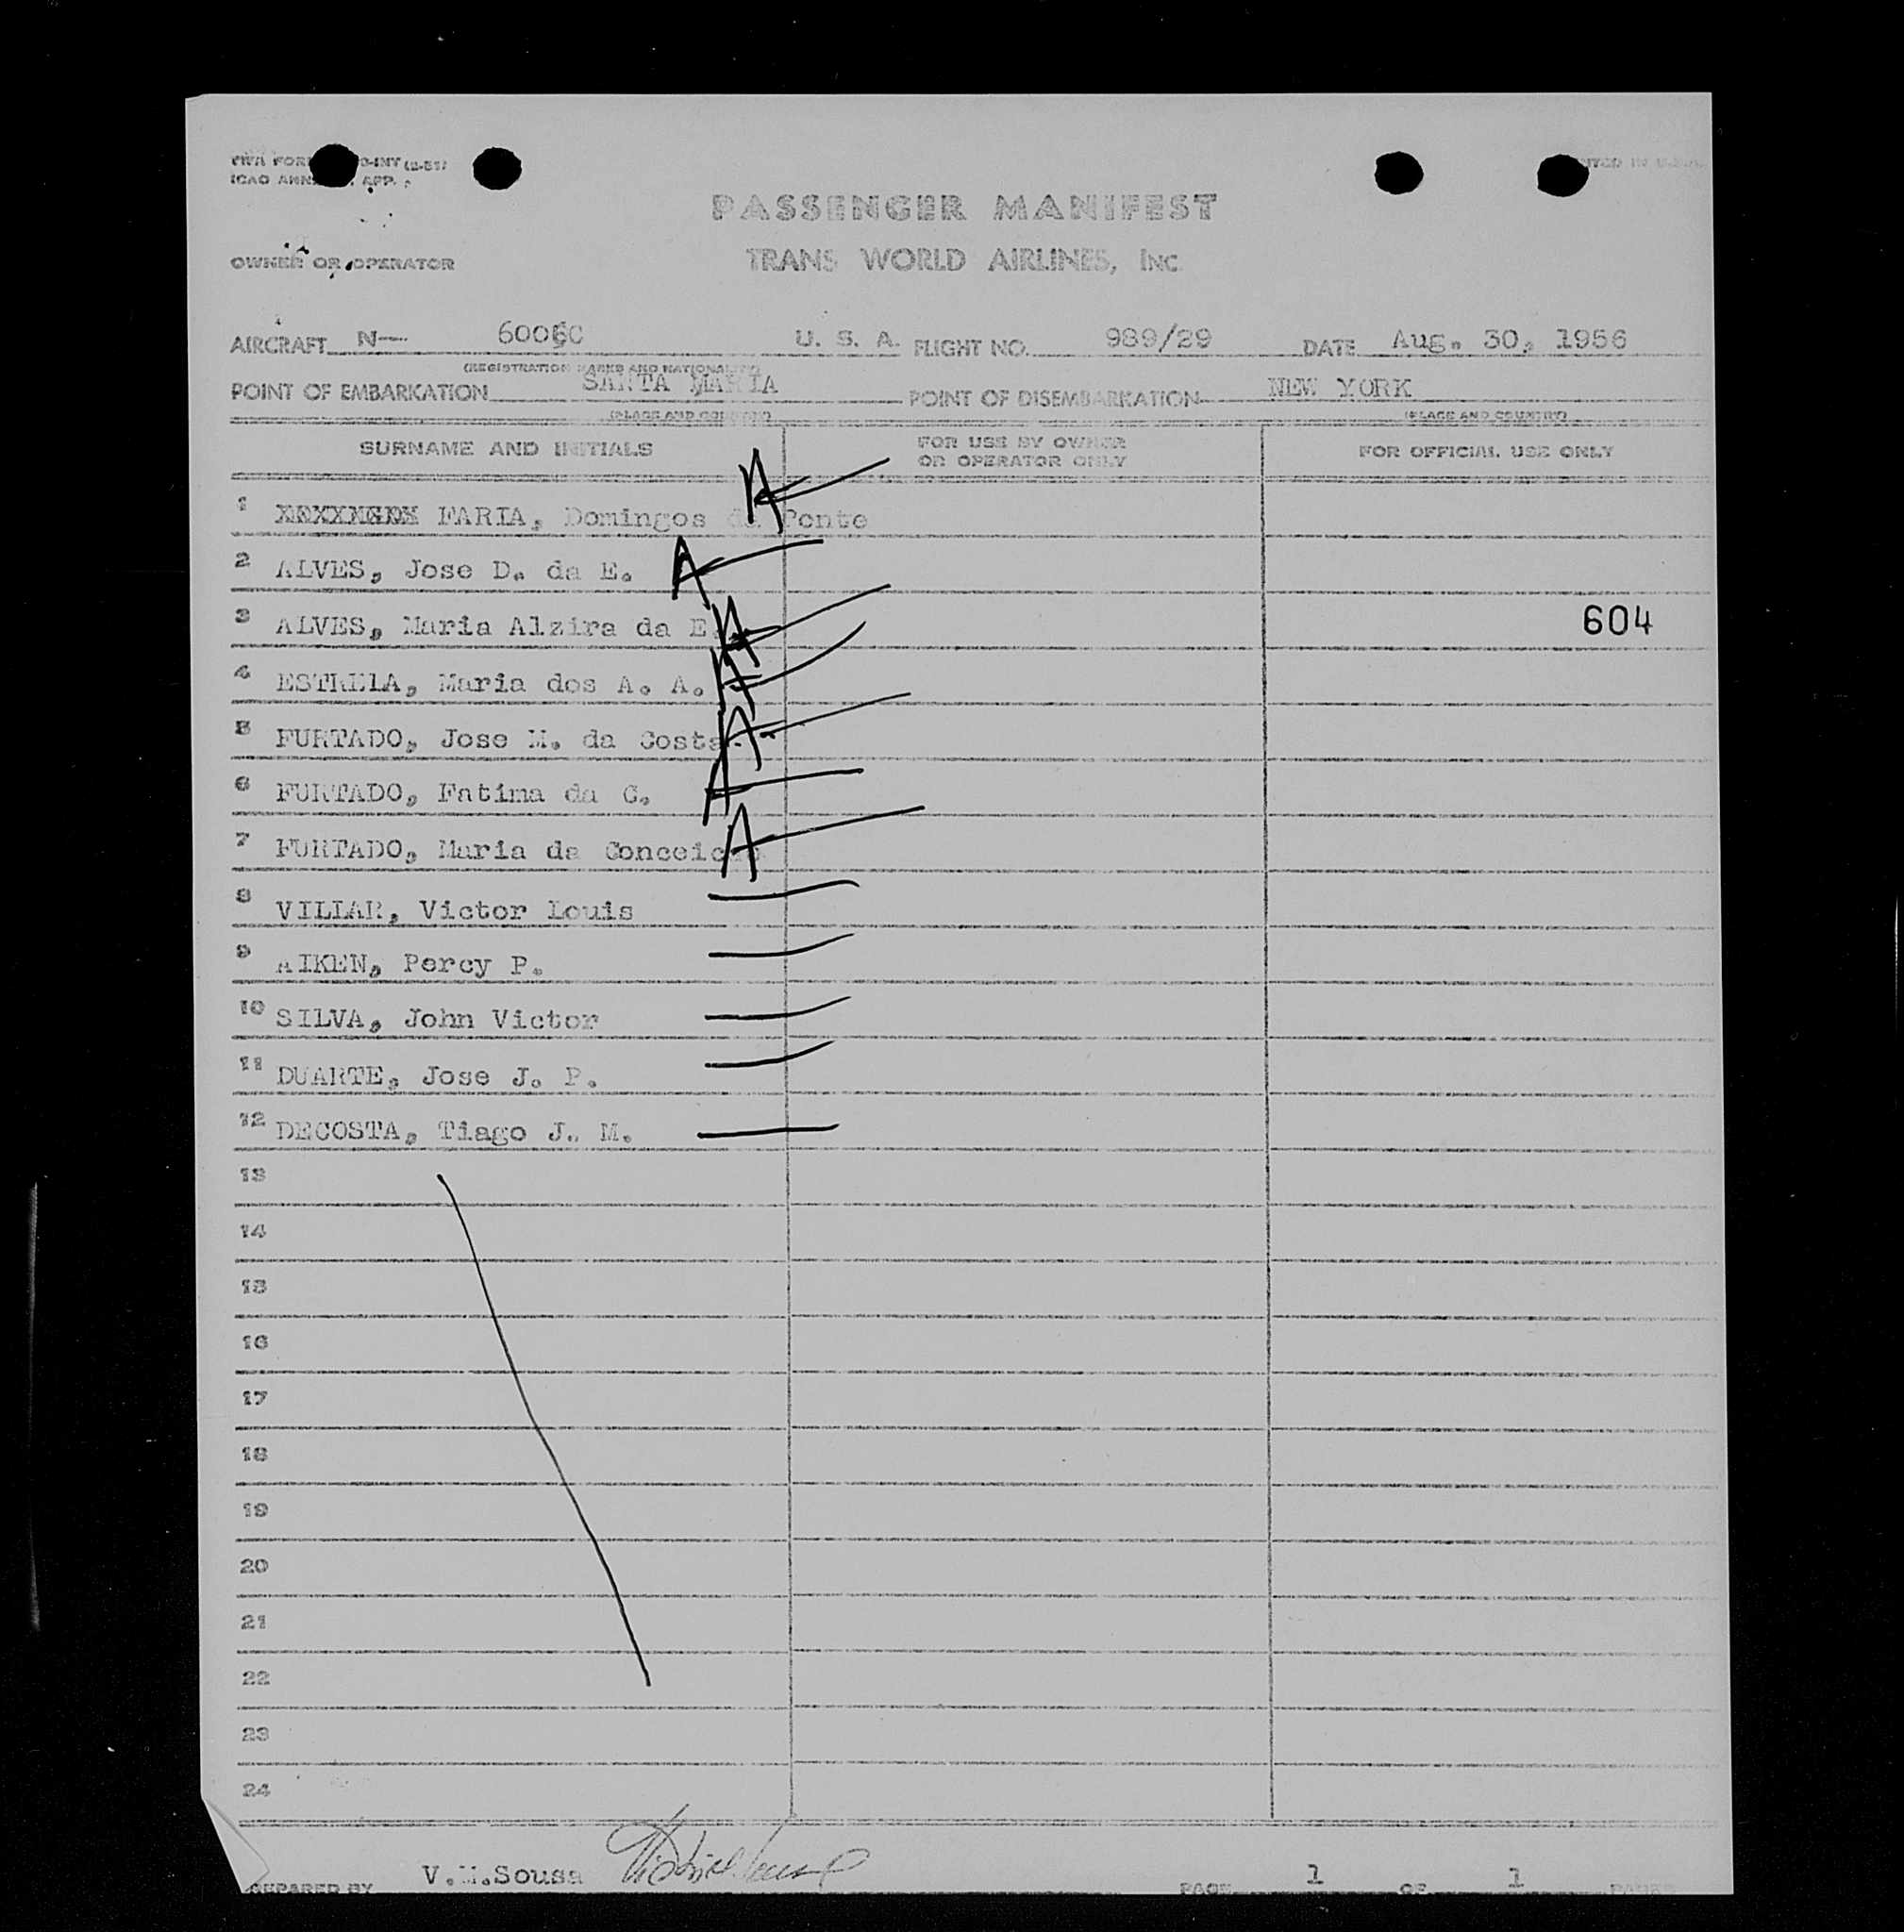 TWA FORM O-INT (2-51)
ICAO ANNEX APP.
PRINTED IN U.S.A.
PASSENGER MANIFEST
OWNER OR OPERATOR TRANS WORLD AIRLINES, INC
AIRCRAFT N— U. S. A. FLIGHT NO. 989/29 DATE Aug. 30, 1956
(REGISTRATION MARKS AND NATIONALITY)
POINT OF EMBARKATION SANTA MARIA POINT OF DISEMBARKATION NEW YORK
(PLACE AND COUNTRY) (PLACE AND COUNTRY)
SURNAME AND INITIALS FOR USE BY OWNER OR OPERATOR ONLY FOR OFFICIAL USE ONLY
1 FARIA, Domingos da Ponte A
2 ALVES, Jose D. da E. A
3 ALVES, Maria Alzira da E. A 604
4 ESTRELA, Maria dos A. A. A
5 FURTADO, Jose M. da Costa A
6 FURTADO, Fatima da C. A
7 FURTADO, Maria da Conceicao A
8 VILLAR, Victor Louis
9 AIKEN, Percy P.
10 SILVA, John Victor
11 DUARTE, Jose J. P.
12 DECOSTA, Tiago J. M.
13
14
15
16
17
18
19
20
21
22
23
24
PREPARED BY V.M.Sousa PAGE 1 OF 1 PAGES